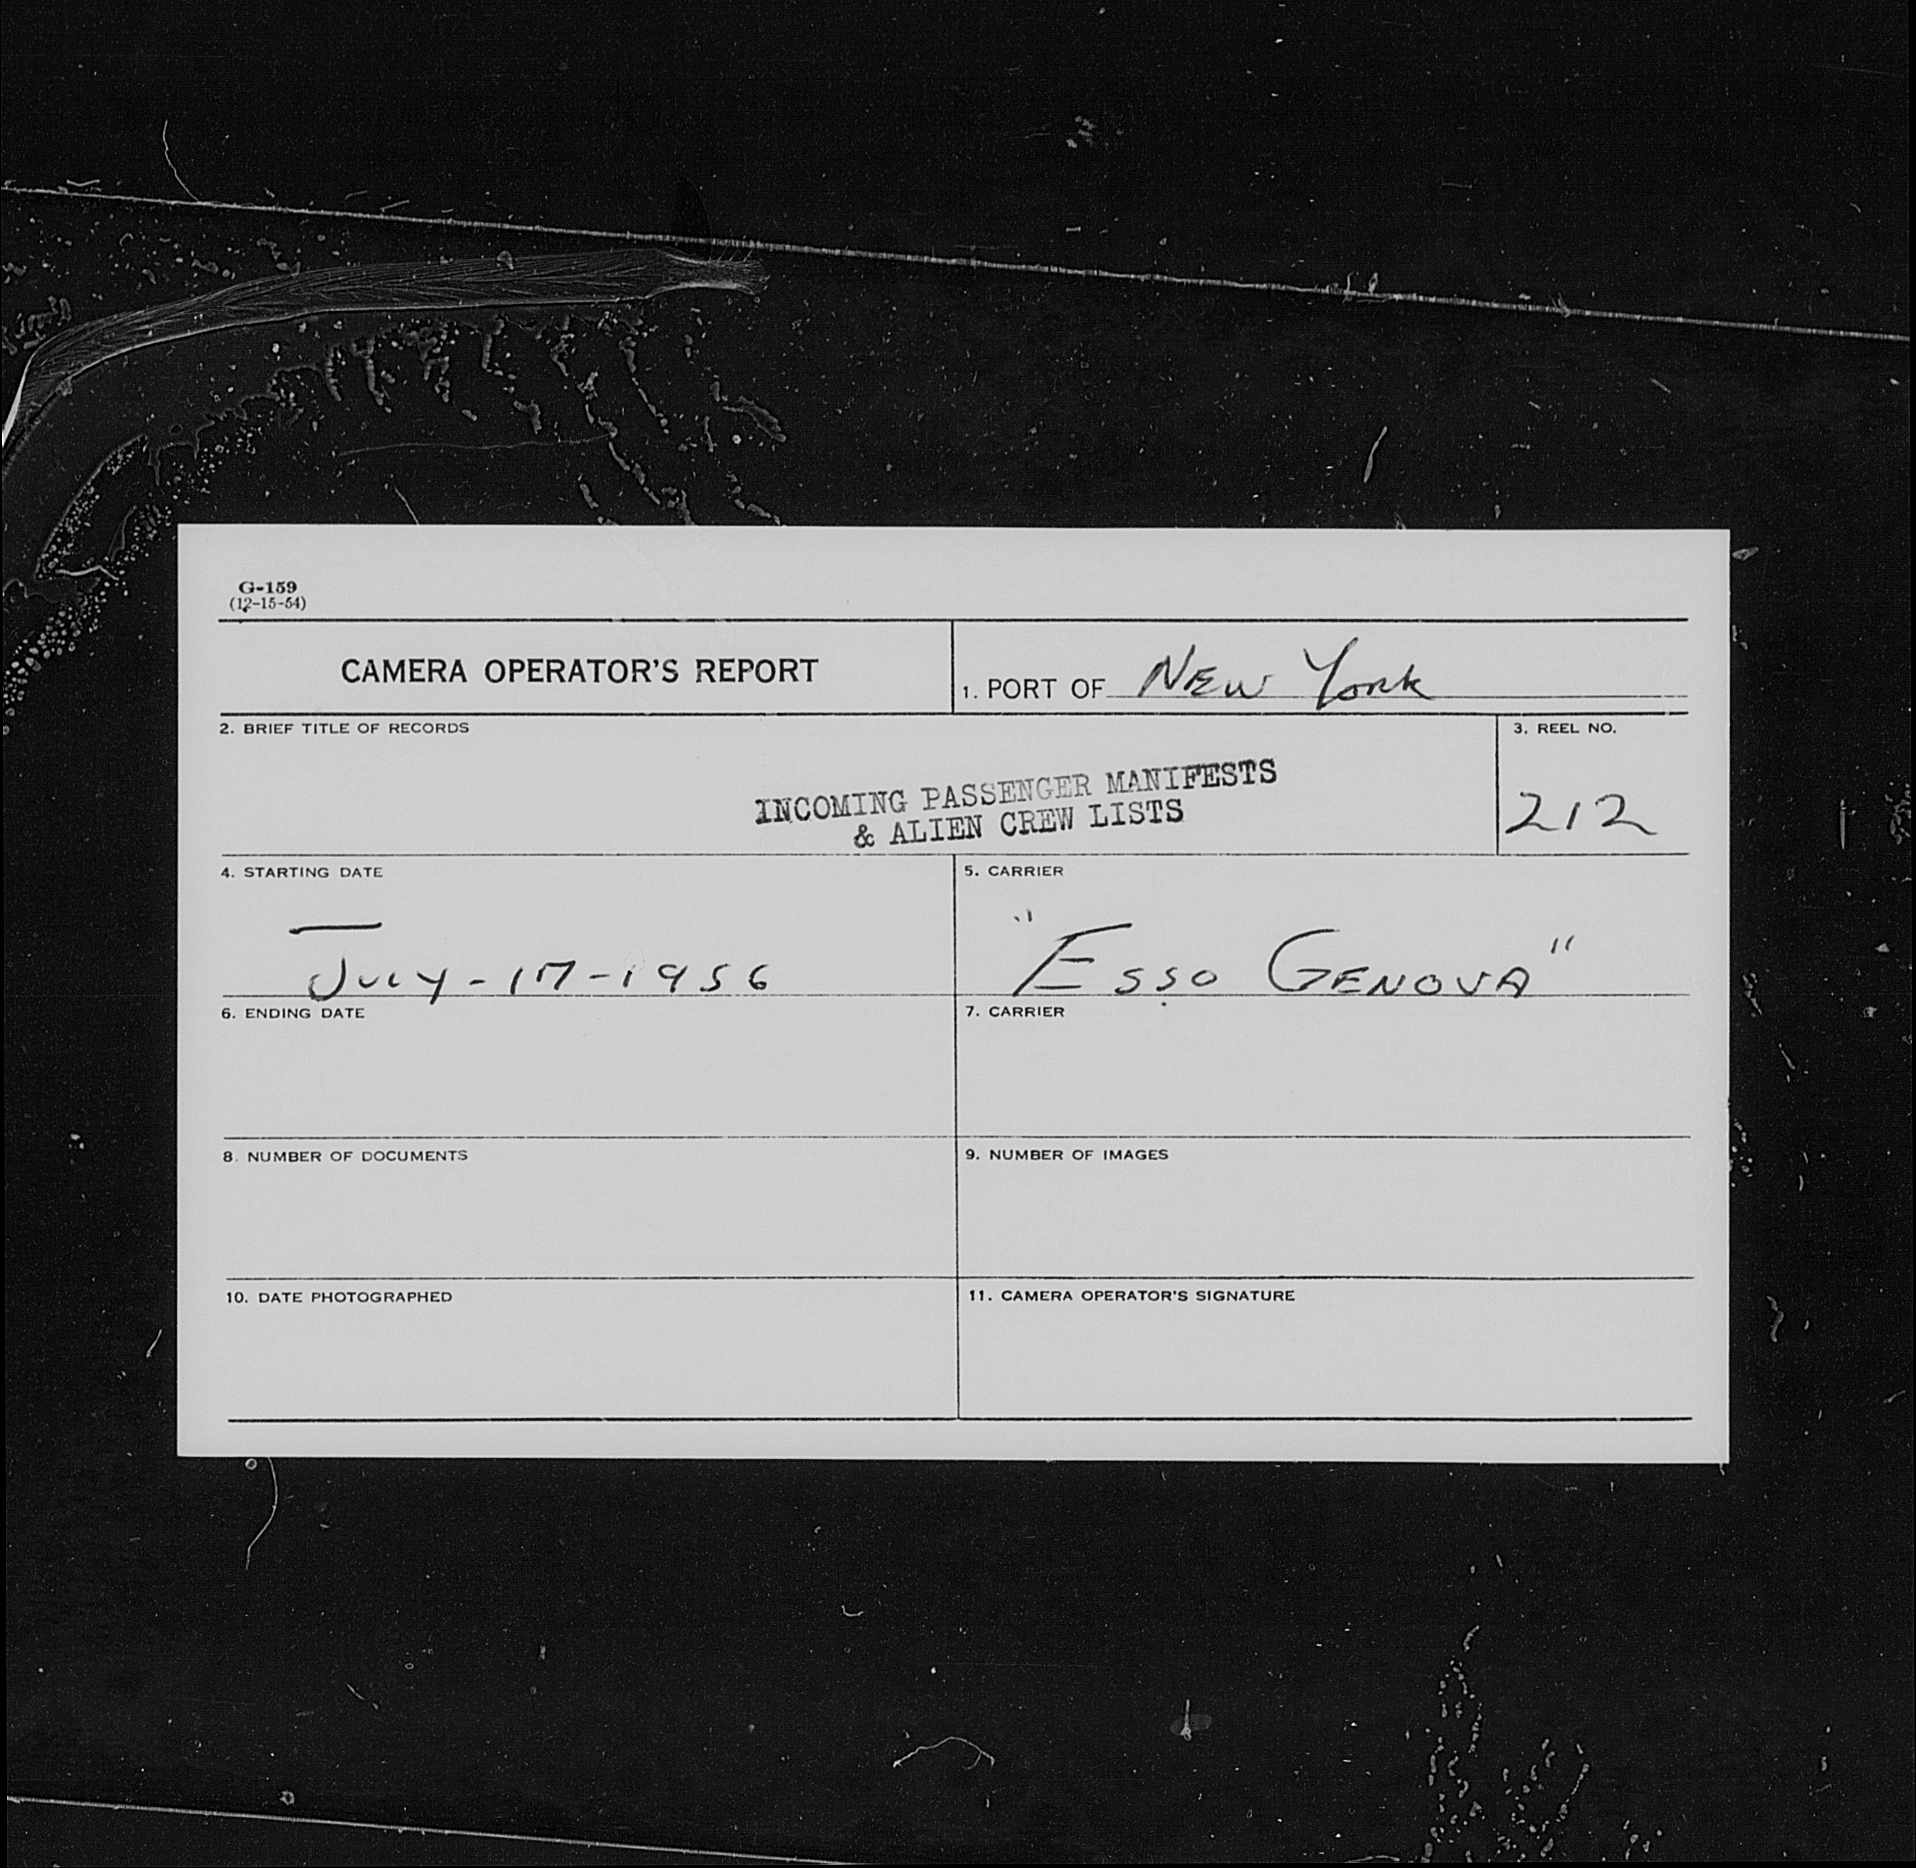 G-159
(12-15-54)
CAMERA OPERATOR'S REPORT
1. PORT OF New York
2. BRIEF TITLE OF RECORDS
INCOMING PASSENGER MANIFESTS
& ALIEN CREW LISTS
3. REEL NO.
212
4. STARTING DATE
July-17-1956
5. CARRIER
"ESSO GENOVA"
6. ENDING DATE
7. CARRIER
8. NUMBER OF DOCUMENTS
9. NUMBER OF IMAGES
10. DATE PHOTOGRAPHED
11. CAMERA OPERATOR'S SIGNATURE